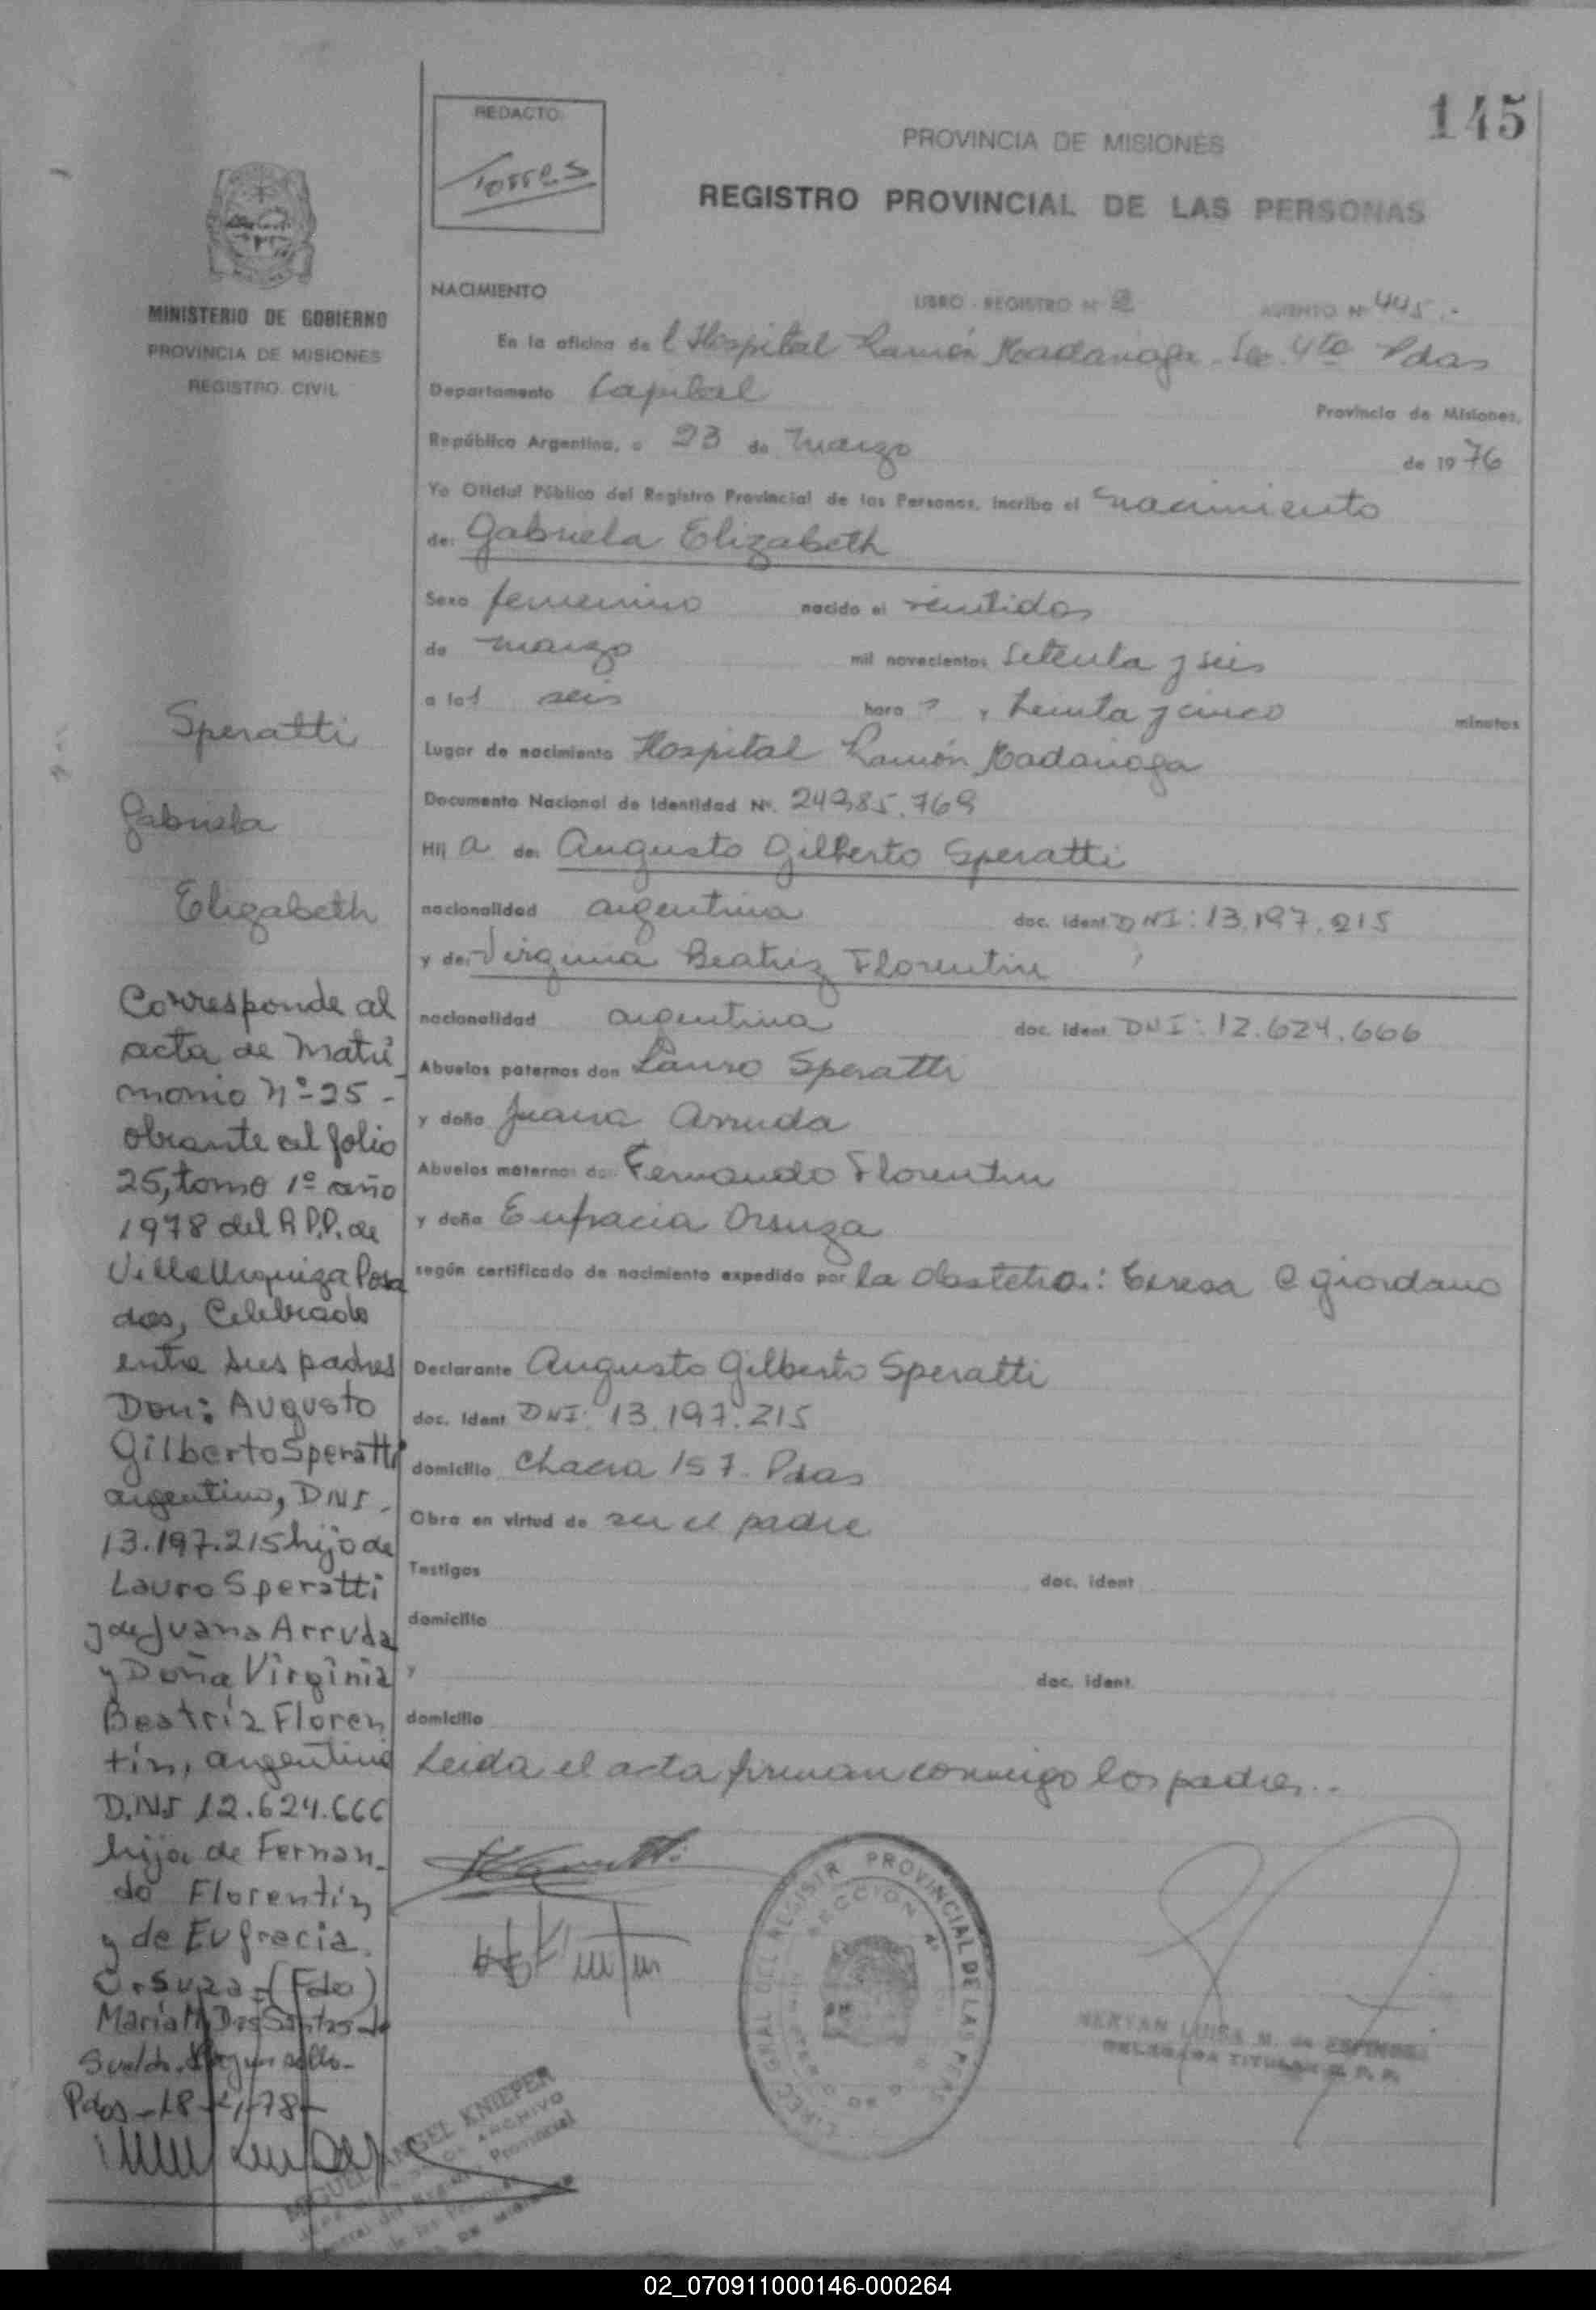 145
REDACTO:
Torres
PROVINCIA DE MISIONES
REGISTRO PROVINCIAL DE LAS PERSONAS
MINISTERIO DE GOBIERNO
PROVINCIA DE MISIONES
REGISTRO CIVIL
NACIMIENTO
LIBRO - REGISTRO Nº 2 ASIENTO Nº 445.-
En la oficina del Hospital Ramón Madariaga - Sec. 4ta Pdas
Departamento Capital Provincia de Misiones,
República Argentina, a 23 de Marzo de 1976
Yo Oficial Público del Registro Provincial de las Personas, incribo el nacimiento
de: Gabriela Elizabeth
Sexo femenino nacido el veintidos
de marzo mil novecientos setenta y seis
a las seis hora s y treinta y cinco minutos
Lugar de nacimiento Hospital Ramón Madariaga
Documento Nacional de Identidad Nº. 24.985.769
Hij a de: Augusto Gilberto Speratti
nacionalidad argentina doc. ident. DNI: 13.197.215
y de: Virginia Beatriz Florentin
nacionalidad argentina doc. ident. DNI: 12.624.666
Abuelos paternos don Lauro Speratti
y doña Juana Arruda
Abuelos maternos don Fernando Florentin
y doña Eufracia Orsuza
según certificado de nacimiento expedido por la Obstetra: Teresa C Giordano
Declarante Augusto Gilberto Speratti
doc. ident DNI: 13.197.215
domicilio Chacra 157- Pdas
Obra en virtud de ser el padre
Testigos doc. ident
domicilio
y doc. ident.
domicilio
Leida el acta firman conmigo los padres.-
Speratti
Gabriela
Elizabeth
Corresponde al
acta de Matri
monio Nº-25-
obrante al folio
25, tomo 1º año
1978 del R.P.P. de
Villa Urquiza Posa
das, Celebrado
entre sus padres
Don: Augusto
Gilberto Speratti
argentino, DNI.
13.197.215 hijo de
Lauro Speratti
y de Juana Arruda
y Doña Virginia
Beatriz Floren
tin, argentina
D.NI 12.624.666
hija de Fernan-
do Florentin
y de Eufracia
Orsuza-(Fdo)
María M. Dos Santos de
sello-
Pdas-18-
78-
DIREC. GRAL DEL REGISTR PROVINCIAL DE LAS PERS
SECCION 4ª
NERYAN LUISA M. de ESPINOSA
DELEGADA TITULAR R. P. P.
MIGUEL ANGEL KNIEPER
ARCHIVO
Registro Provincial
de las Personas
DE MISIONES
02_070911000146-000264